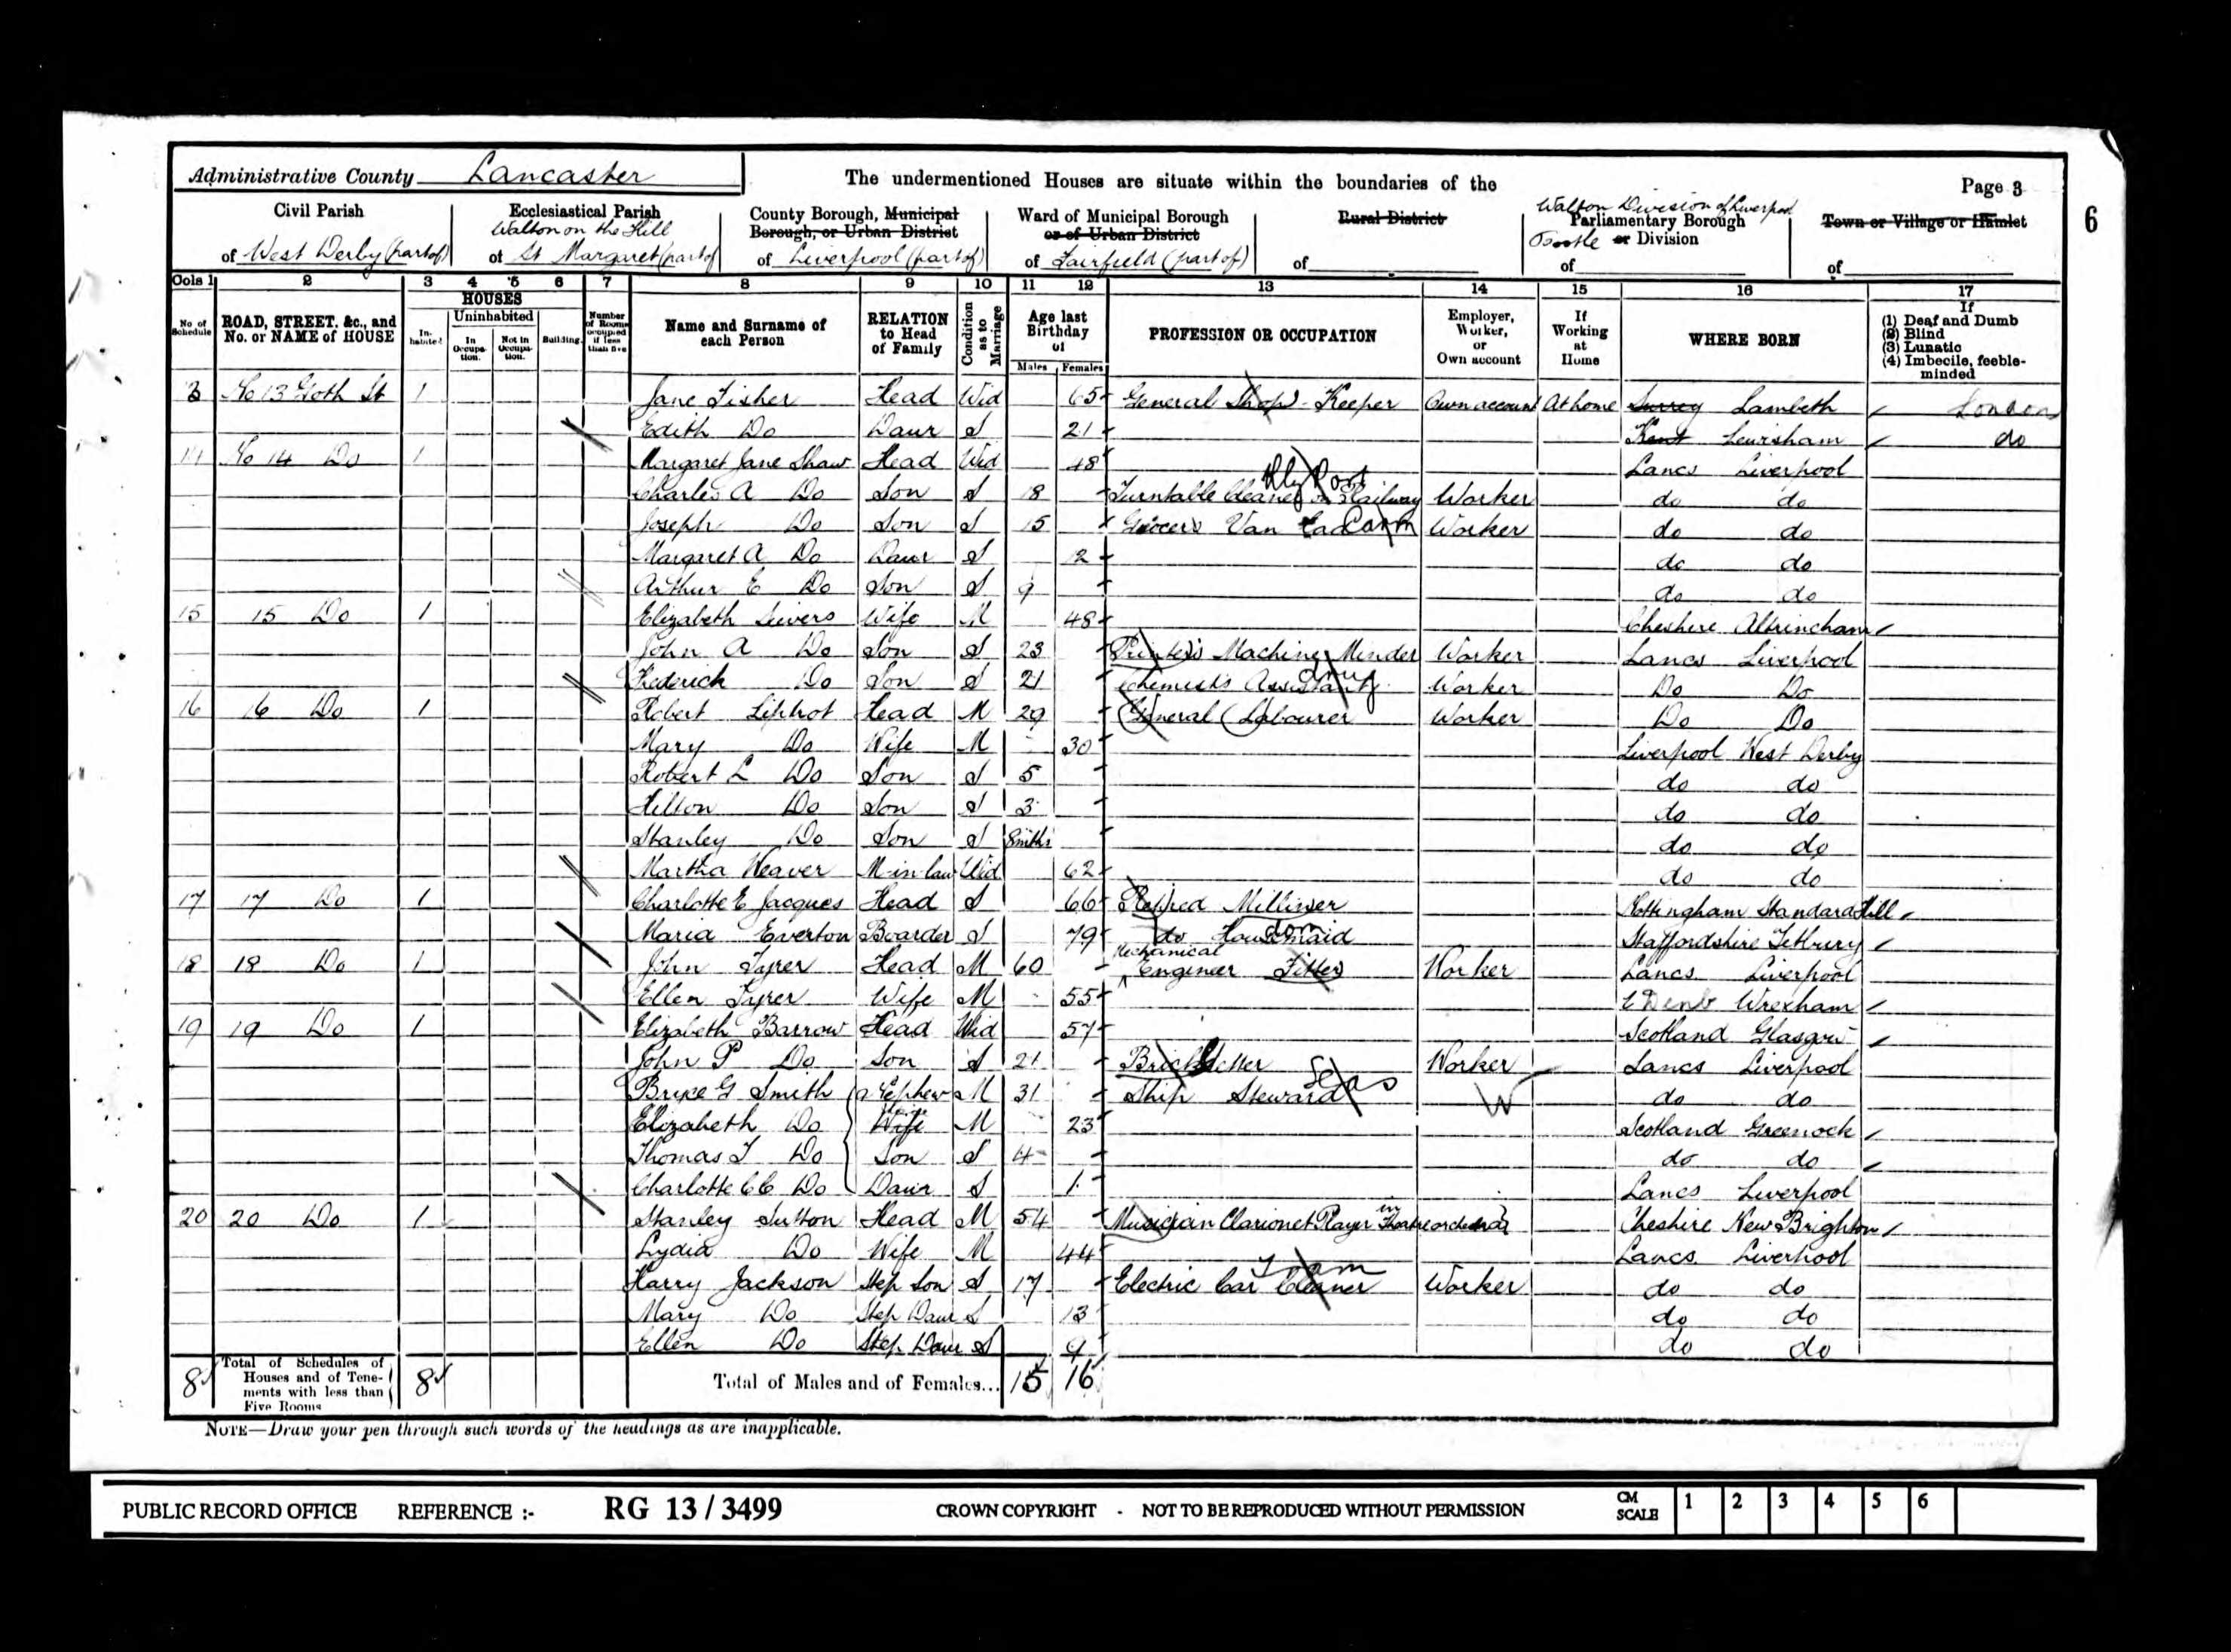 Administrative County Lancaster
The undermentioned Houses are situate within the boundaries of the
Page 3
6
Civil Parish
of West Derby (part of)
Ecclesiastical Parish
Walton on the Hill
of St Margaret (part of)
County Borough, Municipal
Borough, or Urban District
of Liverpool (part of)
Ward of Municipal Borough
or of Urban District
of Fairfield (part of)
Rural District
of
Walton Division of Liverpool
Parliamentary Borough
or Division
of
Town or Village or Hamlet
of
Cols 1 2 3 4 5 6 7 8 9 10 11 12 13 14 15 16 17
No of Schedule
ROAD, STREET, &c., and No. or NAME of HOUSE
HOUSES
Inhabited
Uninhabited
In Occupation.
Not in Occupation.
Building.
Number of Rooms occupied if less than five
Name and Surname of each Person
RELATION to Head of Family
Condition as to Marriage
Age last Birthday of
Males Females
PROFESSION OR OCCUPATION
Employer, Worker, or Own account
If Working at Home
WHERE BORN
If
(1) Deaf and Dumb
(2) Blind
(3) Lunatic
(4) Imbecile, feeble-minded
3 No 13 Goth St 1 Jane Fisher Head Wid 65 General Shop Keeper Own account At home Surrey Lambeth London
Edith Do Daur S 21 Kent Lewisham do
14 No 14 Do 1 Margaret Jane Shaw Head Wid 48 Lancs Liverpool
Charles A Do Son S 18 Turntable Cleaner on Railway Worker do do
Joseph Do Son S 15 Grocers Van Lad Carm Worker do do
Margaret A Do Daur S 12 do do
Arthur E Do Son S 9 do do
15 15 Do 1 Elizabeth Sievers Wife M 48 Cheshire Altrincham
John A Do Son S 23 Printer's Machine Minder Worker Lancs Liverpool
Frederick Do Son S 21 Chemist's Assistant drug Worker Do Do
16 16 Do 1 Robert Liptrot Head M 29 General Labourer Worker Do Do
Mary Do Wife M 30 Liverpool West Derby
Robert L Do Son S 5 do do
Hilton Do Son S 3 do do
Stanley Do Son S 8 mths do do
Martha Weaver M-in-law Wid 62 do do
17 17 Do 1 Charlotte E Jacques Head S 66 Retired Milliner Nottingham Standard Hill
Maria Everton Boarder S 79 do Housemaid dom Staffordshire Tetbury
18 18 Do 1 John Tyrer Head M 60 Mechanical Engineer Fitter Worker Lancs Liverpool
Ellen Tyrer Wife M 55 Denb Wrexham
19 19 Do 1 Elizabeth Barrow Head Wid 57 Scotland Glasgow
John P Do Son S 21 Bricksetter Worker Lancs Liverpool
Smith Nephew M 31 Ship Steward Seas W do do
Elizabeth Do Wife M 23 Scotland Greenock
Thomas J Do Son S 4 do do
Charlotte Do Daur S 1 Lancs Liverpool
20 20 Do 1 Stanley Sutton Head M 54 Musician Clarionet Player in Theatre orchestra Cheshire New Brighton
Lydia Do Wife M 44 Lancs. Liverpool
Harry Jackson Step Son S 17 Electric Car Cleaner Tram Worker do do
Mary Do Step Daur S 13 do do
Ellen Do Step Daur S 9 do do
8 Total of Schedules of Houses and of Tenements with less than Five Rooms 8 Total of Males and of Females... 15 16
NOTE—Draw your pen through such words of the headings as are inapplicable.
PUBLIC RECORD OFFICE REFERENCE :- RG 13 / 3499 CROWN COPYRIGHT - NOT TO BE REPRODUCED WITHOUT PERMISSION CM SCALE 1 2 3 4 5 6